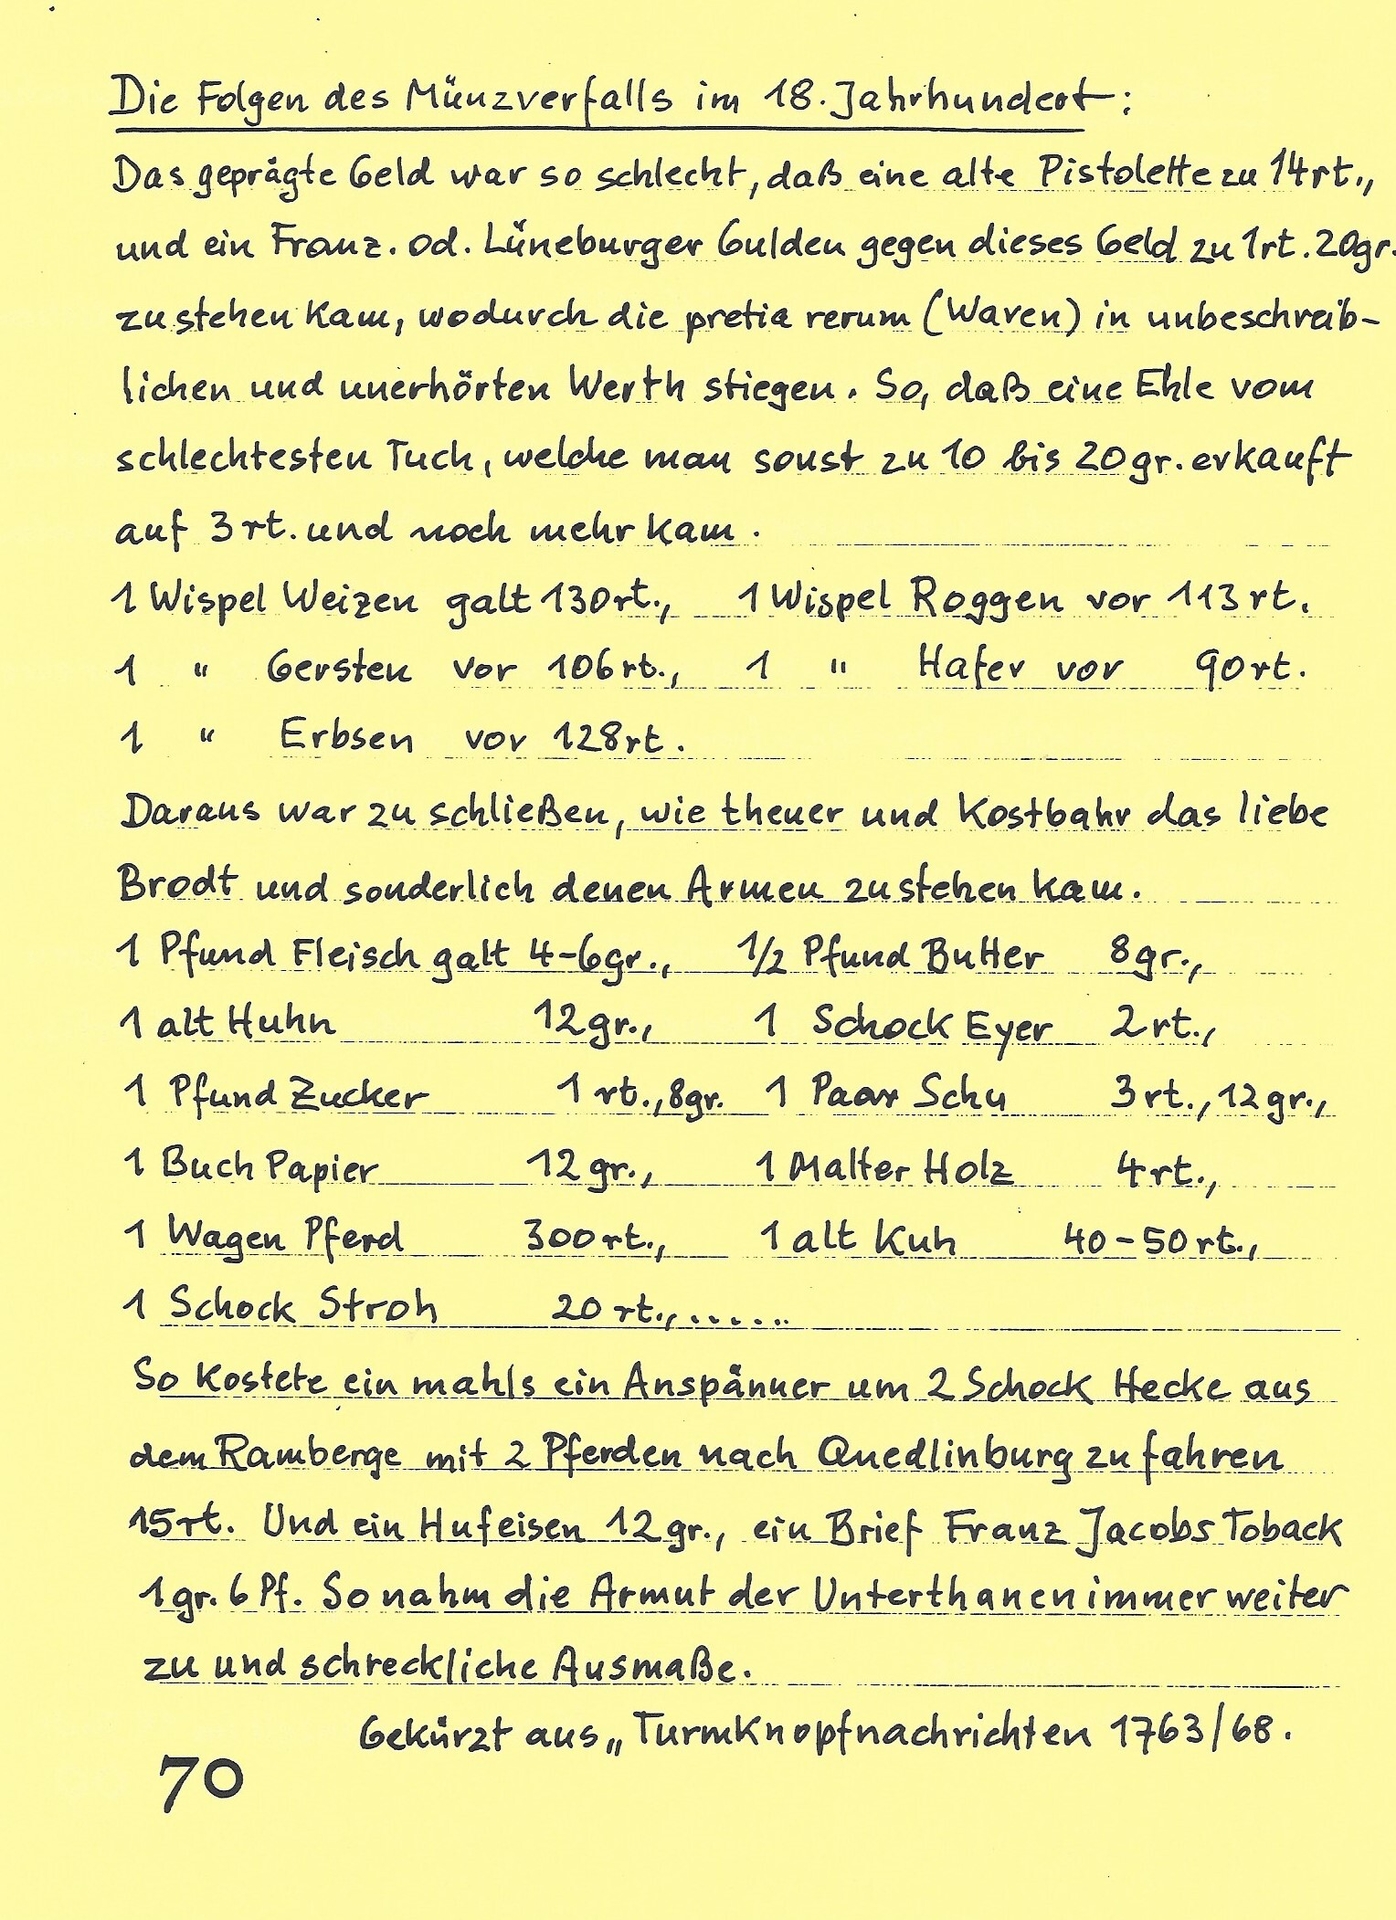 Die Folgen des Münzverfalls im 18. Jahrhundert:
Das geprägte Geld war so schlecht, daß eine alte Pistolette zu 14rt.,
und ein Franz. od. Lüneburger Gulden gegen dieses Geld zu 1rt. 20gr.
zu stehen kam, wodurch die pretia rerum (Waren) in unbeschreib-
lichen und unerhörten Werth stiegen. So, daß eine Ehle vom
schlechtesten Tuch, welche man sonst zu 10 bis 20gr. erkauft
auf 3rt. und noch mehr kam.
1 Wispel Weizen galt 130rt., 1 Wispel Roggen vor 113rt.
1 " Gersten vor 106rt., 1 " Hafer vor 90rt.
1 " Erbsen vor 128rt.
Daraus war zu schließen, wie theuer und kostbahr das liebe
Brodt und sonderlich denen Armen zu stehen kam.
1 Pfund Fleisch galt 4-6gr., 1/2 Pfund Butter 8gr.,
1 alt Huhn 12gr., 1 Schock Eyer 2rt.,
1 Pfund Zucker 1 rt., 8gr. 1 Paar Schu 3rt., 12gr.,
1 Buch Papier 12gr., 1 Malter Holz 4rt.,
1 Wagen Pferd 300rt., 1 alt Kuh 40-50rt.,
1 Schock Stroh 20rt.,......
So kostete ein mahls ein Anspänner um 2 Schock Hecke aus
dem Ramberge mit 2 Pferden nach Quedlinburg zu fahren
15rt. Und ein Hufeisen 12gr., ein Brief Franz Jacobs Toback
1gr. 6 Pf. So nahm die Armut der Unterthanen immer weiter
zu und schreckliche Ausmaße.
Gekürzt aus „Turmknopfnachrichten 1763/68.
70